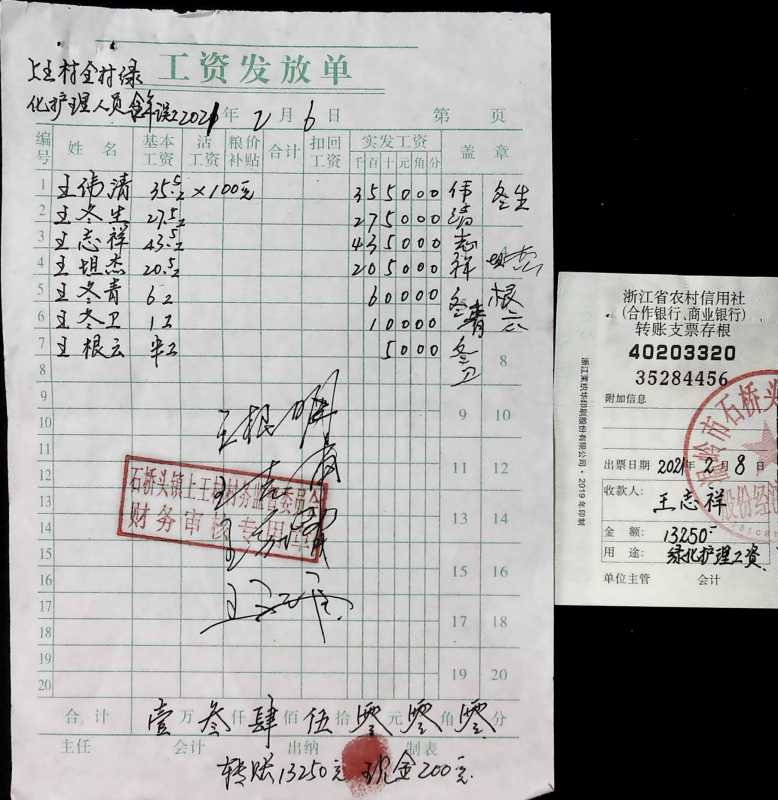 工资发放单
上王村全村绿
化护理人员 2021年2月6日 第 页
编号 姓名 基本工资 沾工资 粮价补贴 合计 扣回工资 实发工资 盖章
千 百 十 元 角 分
1 王伟清 35.5工 ×100元 355000 伟清 冬生
2 王冬生 27.5工 275000
3 王志祥 43.5工 435000 志祥
4 王坦杰 20.5工 205000 坦杰
5 王冬青 6工 60000 冬青 根云
6 王冬卫 1工 10000
7 王根云 半工 5000 冬卫 8
8
9 9 10
10
11 11 12
12
13 13 14
14
15 15 16
16
17 17 18
18
19 19 20
20
石桥头镇上王村村务监督委员会
财务审核专用章
合计 壹万叁仟肆佰伍拾零元零角零分
主任 会计 出纳 制表
转账13250元 现金200元
浙江省农村信用社
(合作银行、商业银行)
转账支票存根
40203320
35284456
附加信息
出票日期 2021年2月8日
收款人:
王志祥
金额: 13250元
用途: 绿化护理工资
单位主管 会计